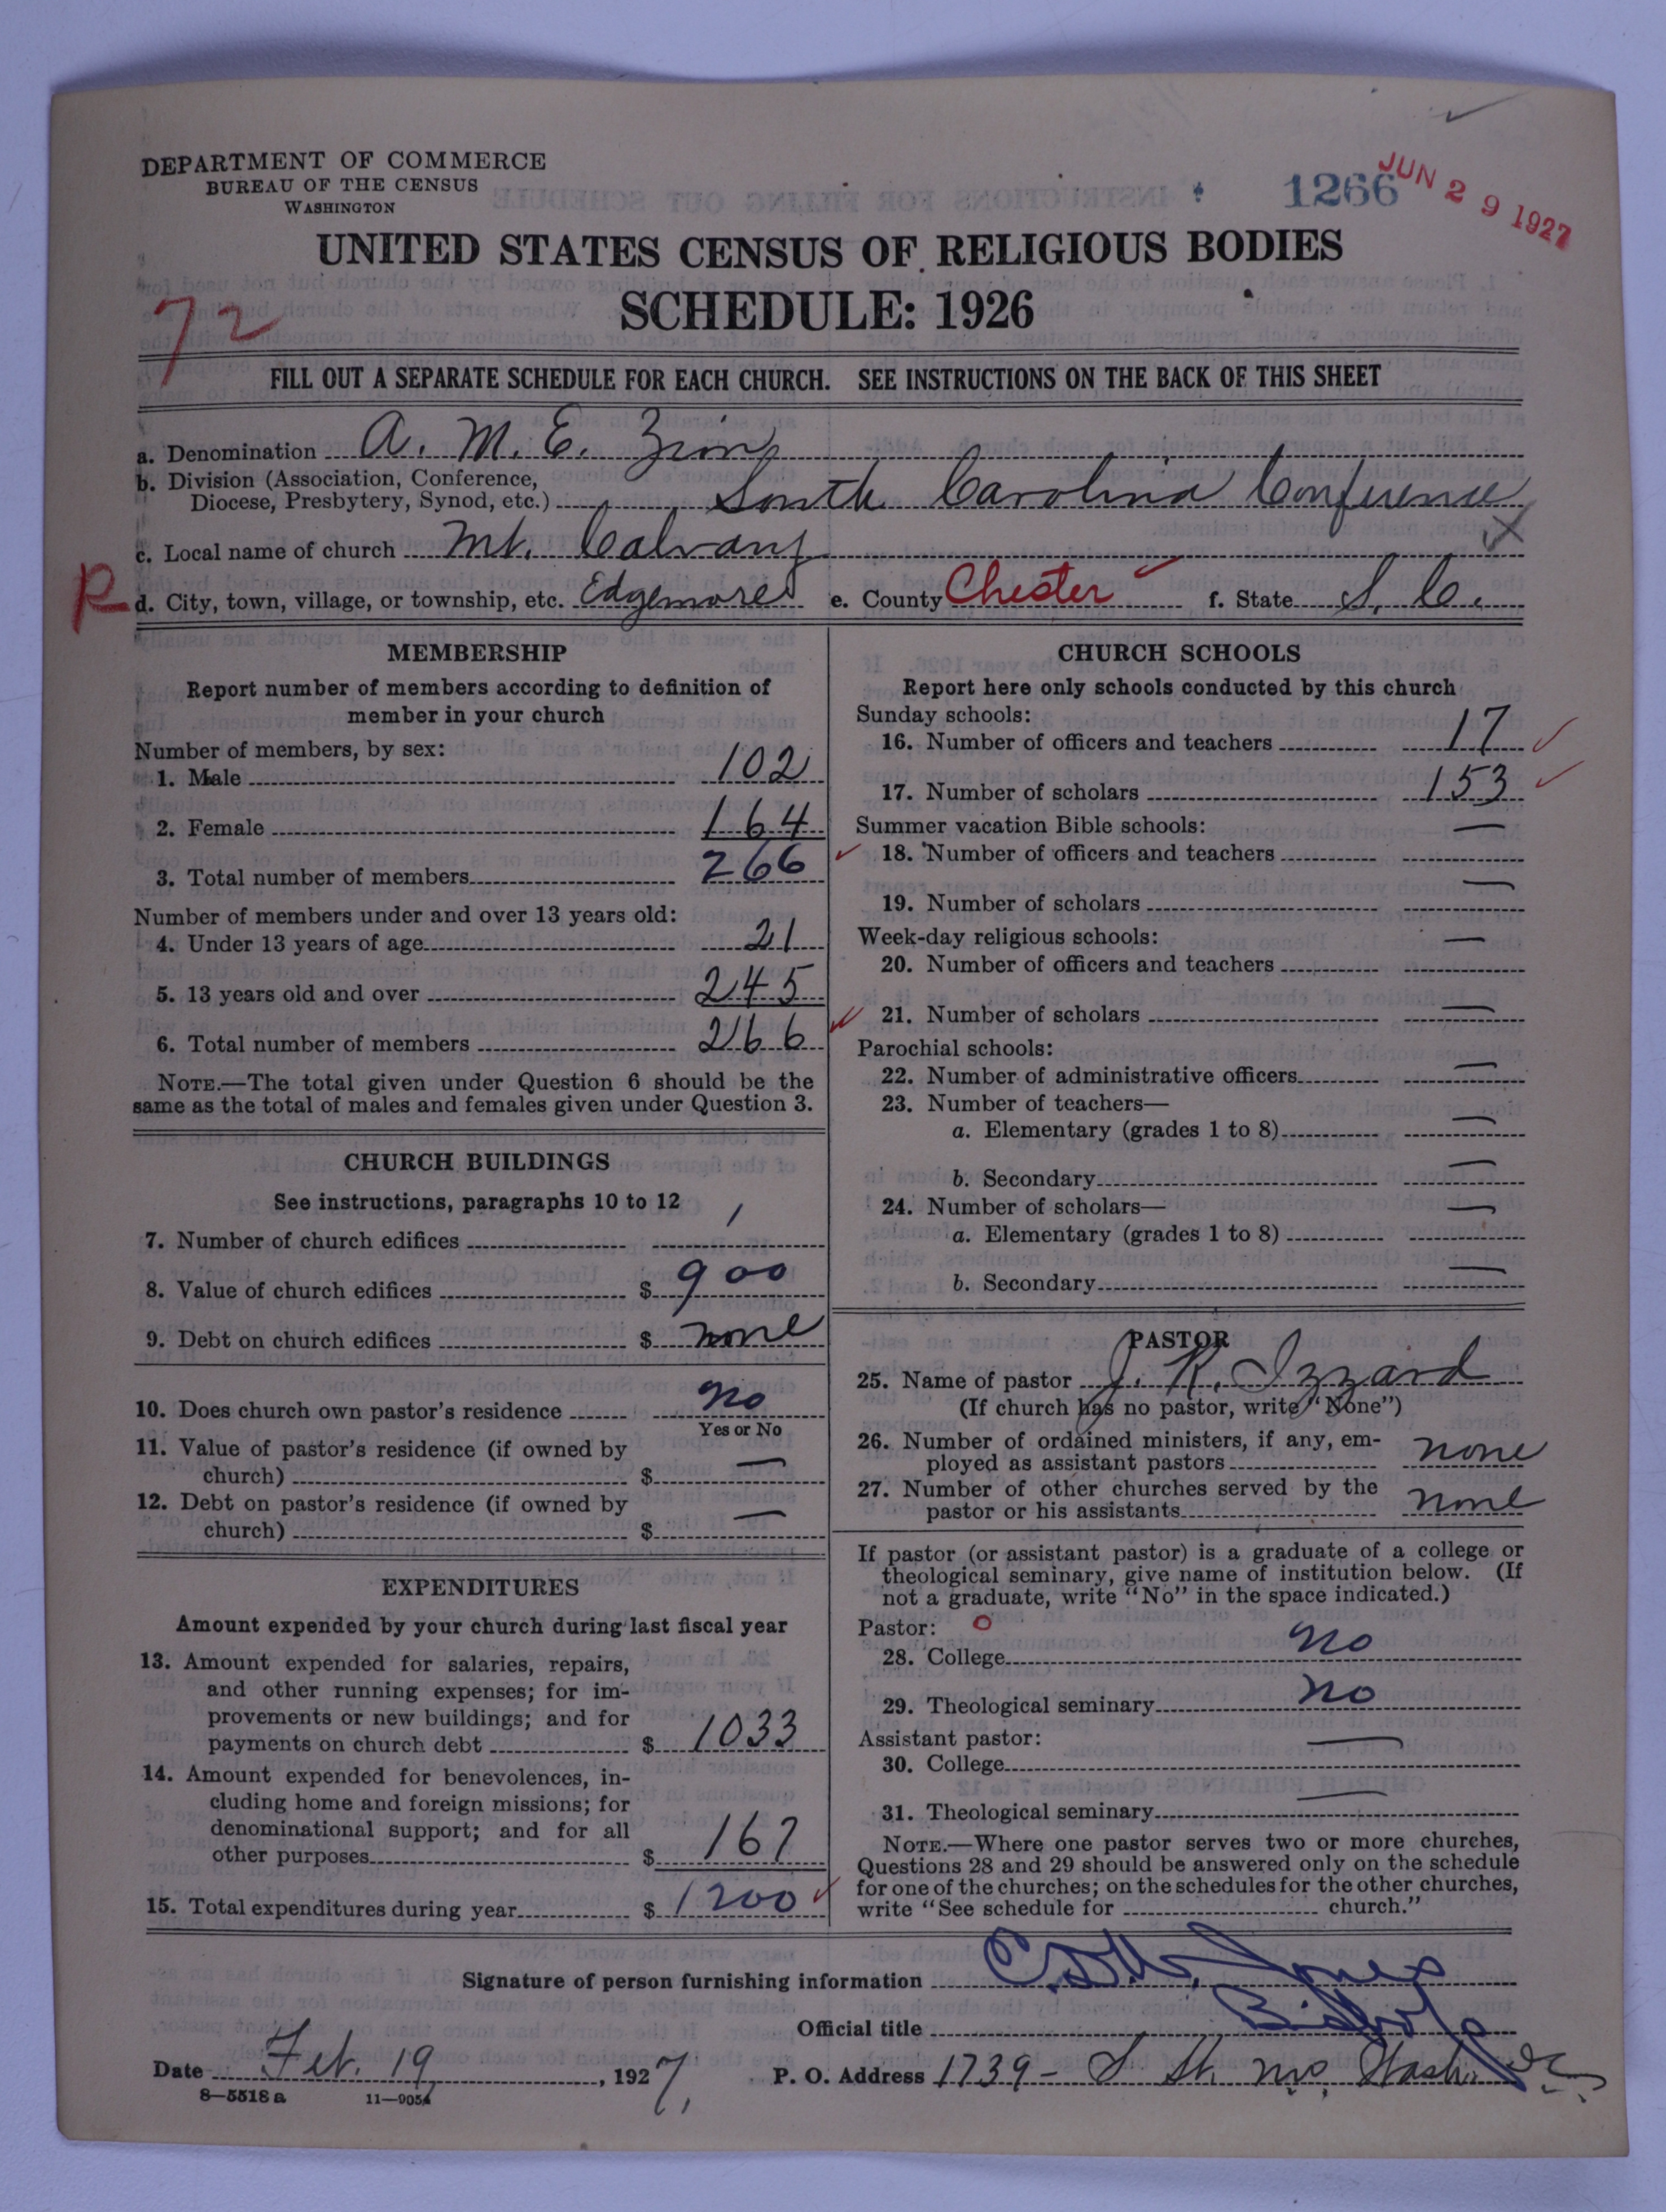 DEPARTMENT OF COMMERCE
BUREAU OF THE CENSUS
WASHINGTON
1266
JUN 29 1927
UNITED STATES CENSUS OF RELIGIOUS BODIES
SCHEDULE: 1926
72
FILL OUT A SEPARATE SCHEDULE FOR EACH CHURCH. SEE INSTRUCTIONS ON THE BACK OF THIS SHEET
a. Denomination A. M. E. Zion
b. Division (Association, Conference,
Diocese, Presbytery, Synod, etc.) South Carolina Conference
c. Local name of church Mt. Calvary
R d. City, town, village, or township, etc. Edgemore e. County Chester f. State S. C.
MEMBERSHIP
Report number of members according to definition of
member in your church
Number of members, by sex:
1. Male 102
2. Female 164
3. Total number of members 266
Number of members under and over 13 years old:
4. Under 13 years of age 21
5. 13 years old and over 245
6. Total number of members 266
NOTE.—The total given under Question 6 should be the
same as the total of males and females given under Question 3.
CHURCH BUILDINGS
See instructions, paragraphs 10 to 12
7. Number of church edifices 1
8. Value of church edifices $ 900
9. Debt on church edifices $ none
10. Does church own pastor's residence no
Yes or No
11. Value of pastor's residence (if owned by
church) $ —
12. Debt on pastor's residence (if owned by
church) $ —
EXPENDITURES
Amount expended by your church during last fiscal year
13. Amount expended for salaries, repairs,
and other running expenses; for im-
provements or new buildings; and for
payments on church debt $ 1033
14. Amount expended for benevolences, in-
cluding home and foreign missions; for
denominational support; and for all
other purposes $ 167
15. Total expenditures during year $ 1200
CHURCH SCHOOLS
Report here only schools conducted by this church
Sunday schools:
16. Number of officers and teachers 17
17. Number of scholars 153
Summer vacation Bible schools:
18. Number of officers and teachers —
19. Number of scholars —
Week-day religious schools:
20. Number of officers and teachers —
21. Number of scholars —
Parochial schools:
22. Number of administrative officers —
23. Number of teachers—
a. Elementary (grades 1 to 8) —
b. Secondary —
24. Number of scholars—
a. Elementary (grades 1 to 8) —
b. Secondary —
PASTOR
25. Name of pastor J. R. Izzard
(If church has no pastor, write "None")
26. Number of ordained ministers, if any, em-
ployed as assistant pastors none
27. Number of other churches served by the
pastor or his assistants none
If pastor (or assistant pastor) is a graduate of a college or
theological seminary, give name of institution below. (If
not a graduate, write "No" in the space indicated.)
Pastor: O
28. College no
29. Theological seminary no
Assistant pastor:
30. College —
31. Theological seminary —
NOTE.—Where one pastor serves two or more churches,
Questions 28 and 29 should be answered only on the schedule
for one of the churches; on the schedules for the other churches,
write "See schedule for church."
Signature of person furnishing information Jones
Official title Bishop
Date Feb. 19, 1927, P. O. Address 1739 - S St. N.W. Wash. D.C.
8—5518 a 11—9054